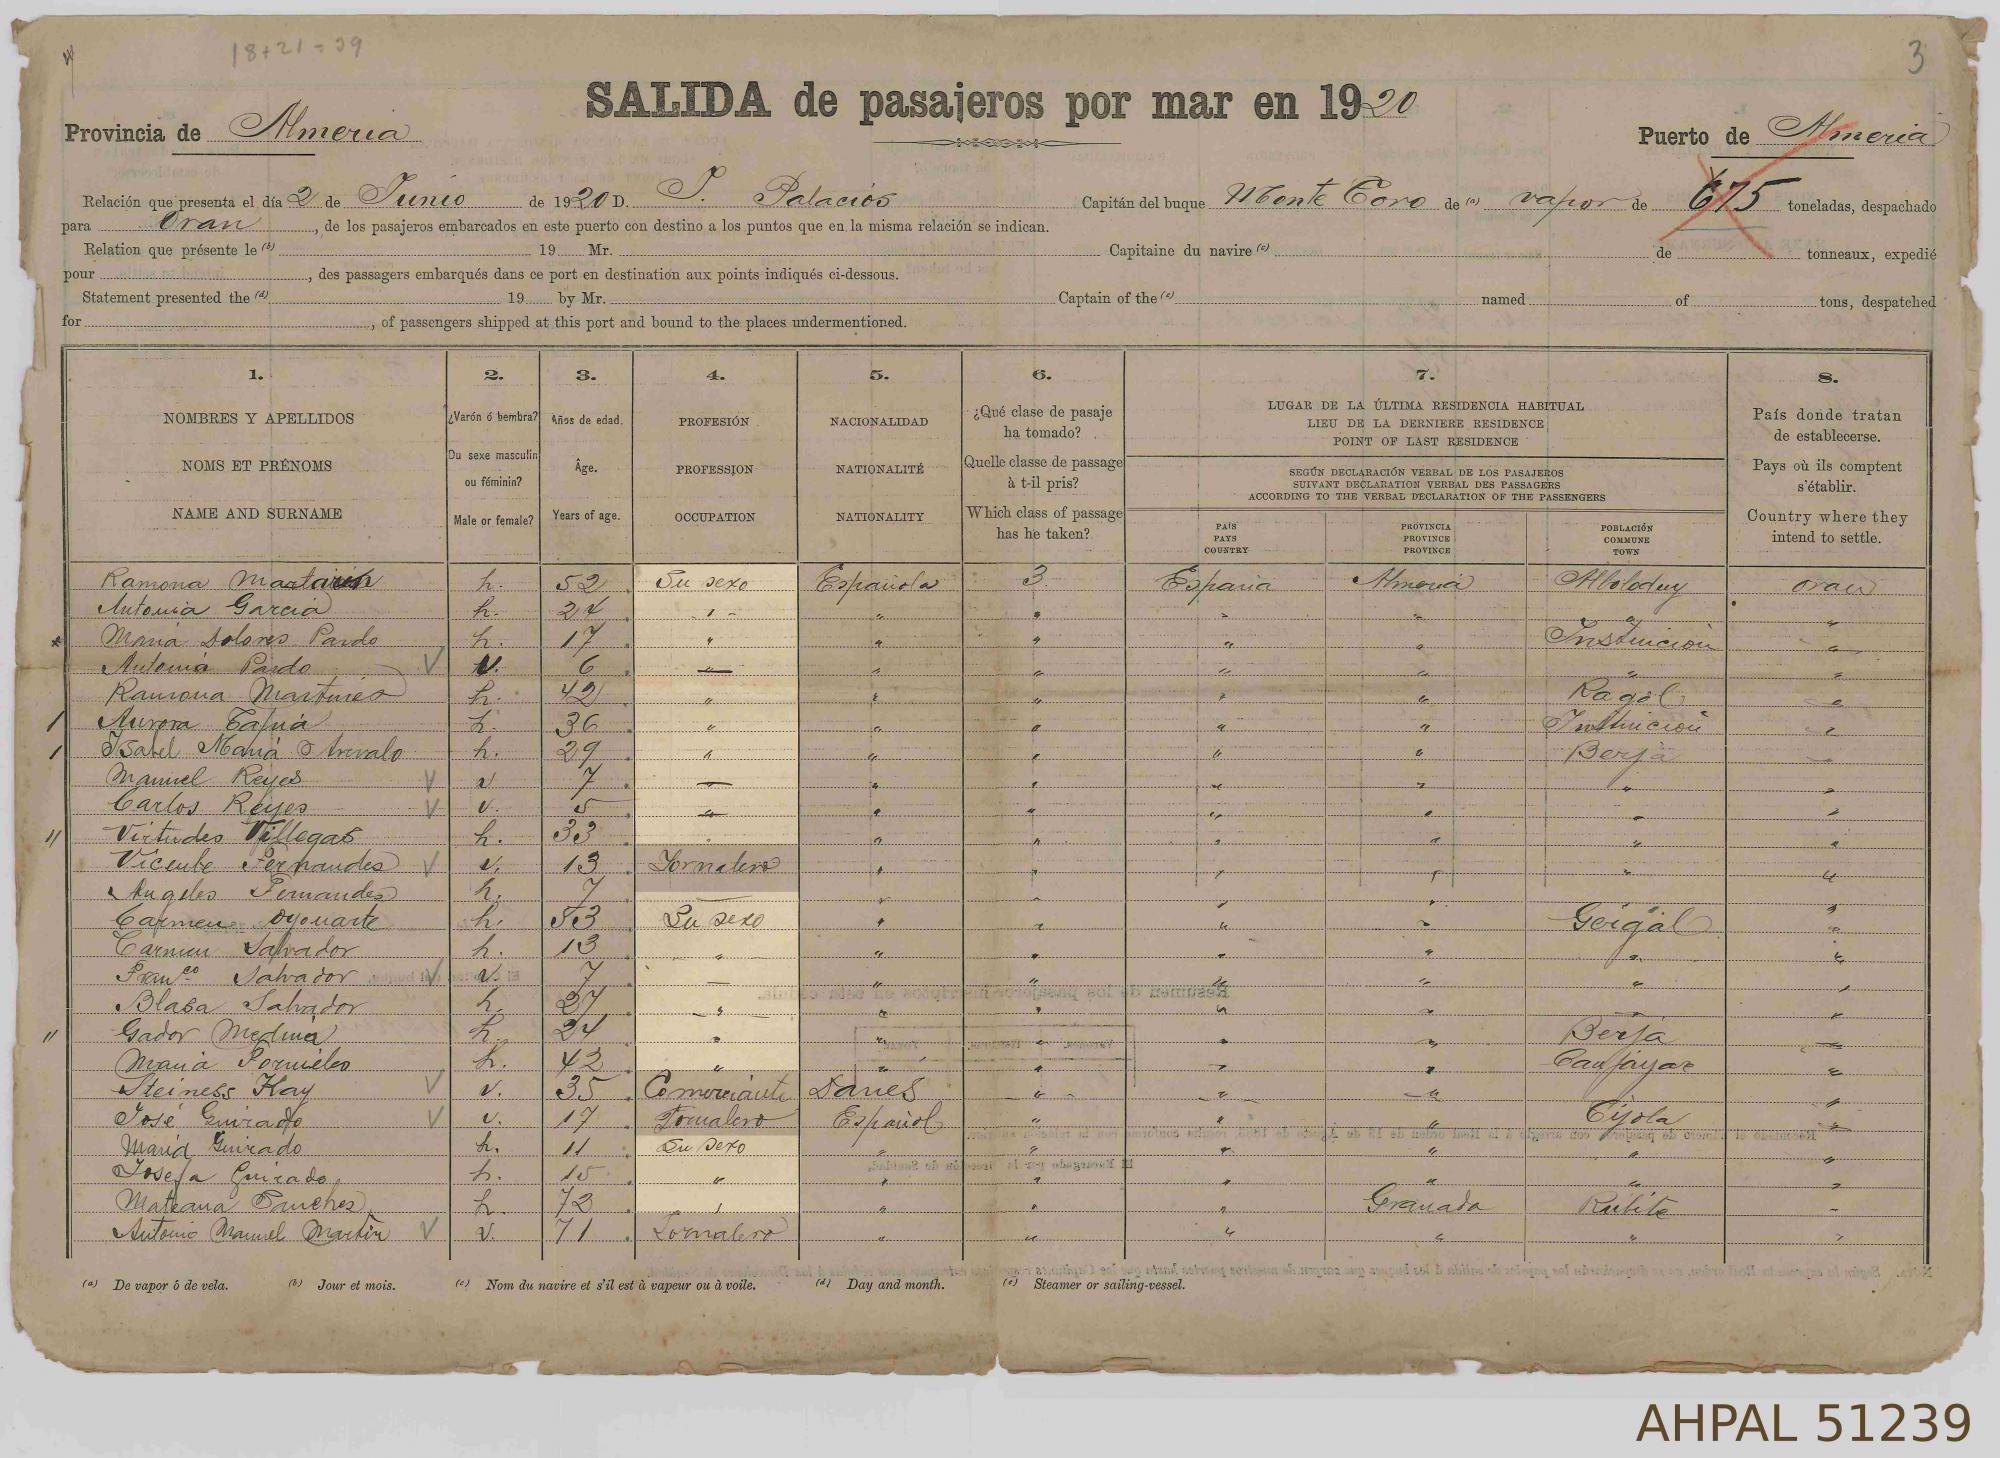 18+21=39
3
SALIDA de pasajeros por mar en 1920
Provincia de Almeria
Puerto de Almeria
Relación que presenta el día 2 de Junio de 1920 D. P. Palacios Capitán del buque Monte Toro de (a) vapor de 675 toneladas, despachado
para Oran, de los pasajeros embarcados en este puerto con destino a los puntos que en la misma relación se indican.
Relation que présente le (b) 19 Mr. Capitaine du navire (c) de tonneaux, expedié
pour, des passagers embarqués dans ce port en destination aux points indiqués ci-dessous.
Statement presented the (d) 19 by Mr. Captain of the (e) named of tons, despatched
for, of passengers shipped at this port and bound to the places undermentioned.
1. 2. 3. 4. 5. 6. 7. 8.
NOMBRES Y APELLIDOS
NOMS ET PRÉNOMS
NAME AND SURNAME
¿Varón ó hembra?
Du sexe masculin
ou féminin?
Male or female?
Años de edad.
Âge.
Years of age.
PROFESIÓN
PROFESSION
OCCUPATION
NACIONALIDAD
NATIONALITÉ
NATIONALITY
¿Qué clase de pasaje
ha tomado?
Quelle classe de passage
à t-il pris?
Which class of passage
has he taken?
LUGAR DE LA ÚLTIMA RESIDENCIA HABITUAL
LIEU DE LA DERNIERE RESIDENCE
POINT OF LAST RESIDENCE
SEGÚN DECLARACIÓN VERBAL DE LOS PASAJEROS
SUIVANT DECLARATION VERBAL DES PASSAGERS
ACCORDING TO THE VERBAL DECLARATION OF THE PASSENGERS
PAÍS
PAYS
COUNTRY
PROVINCIA
PROVINCE
PROVINCE
POBLACIÓN
COMMUNE
TOWN
País donde tratan
de establecerse.
Pays où ils comptent
s'établir.
Country where they
intend to settle.
Ramona h. 52 Su sexo Española 3. España Almeria Alboloduy oran
Antonia Garcia h. 24 " " " " " "
Maria Dolores Pardo h. 17 " " " " " Instinción "
Antonia Pardo v. 6 " " " " " " "
Ramona Martines h. 42 " " " " " Ragol "
Aurora Tapia h. 36 " " " " " Instinción "
Isabel Maria Arevalo h. 29 " " " " " Berja "
Manuel Reyes v 7 — " " " " " "
Carlos Reyes v. 5 " " " " " " "
Virtudes Villegas h. 33 " " " " " "
Vicente Fernandes v. 13 Jornalero " " " " " "
Angeles Fernandes h. 7 — " " " " " "
Carmen Oyonarte h. 53 Su sexo " " " " Gergal "
Carmen Salvador h. 13 " " " " " " "
Franco Salvador v. 7 — " " " " " "
Blasa Salvador h. 27 " " " " " " "
Gador Medina h. 24 " " " " " Berja "
Maria Fornieles h. 42 " " " " " Canjayar "
Steiness Kay v. 35 Comerciante Danes " " " "
José Guirado v. 17 Jornalero Español " " " Tijola "
Maria Guirado h. 11 Su sexo " " " " " "
Josefa Guirado h. 15 " " " " " " "
Mateana Sanches h. 72 " " " " Granada Rubite "
Antonio Manuel Martin v. 71 Jornalero " " " " " "
(a) De vapor ó de vela. (b) Jour et mois. (c) Nom du navire et s'il est à vapeur ou à voile. (d) Day and month. (e) Steamer or sailing-vessel.
AHPAL 51239